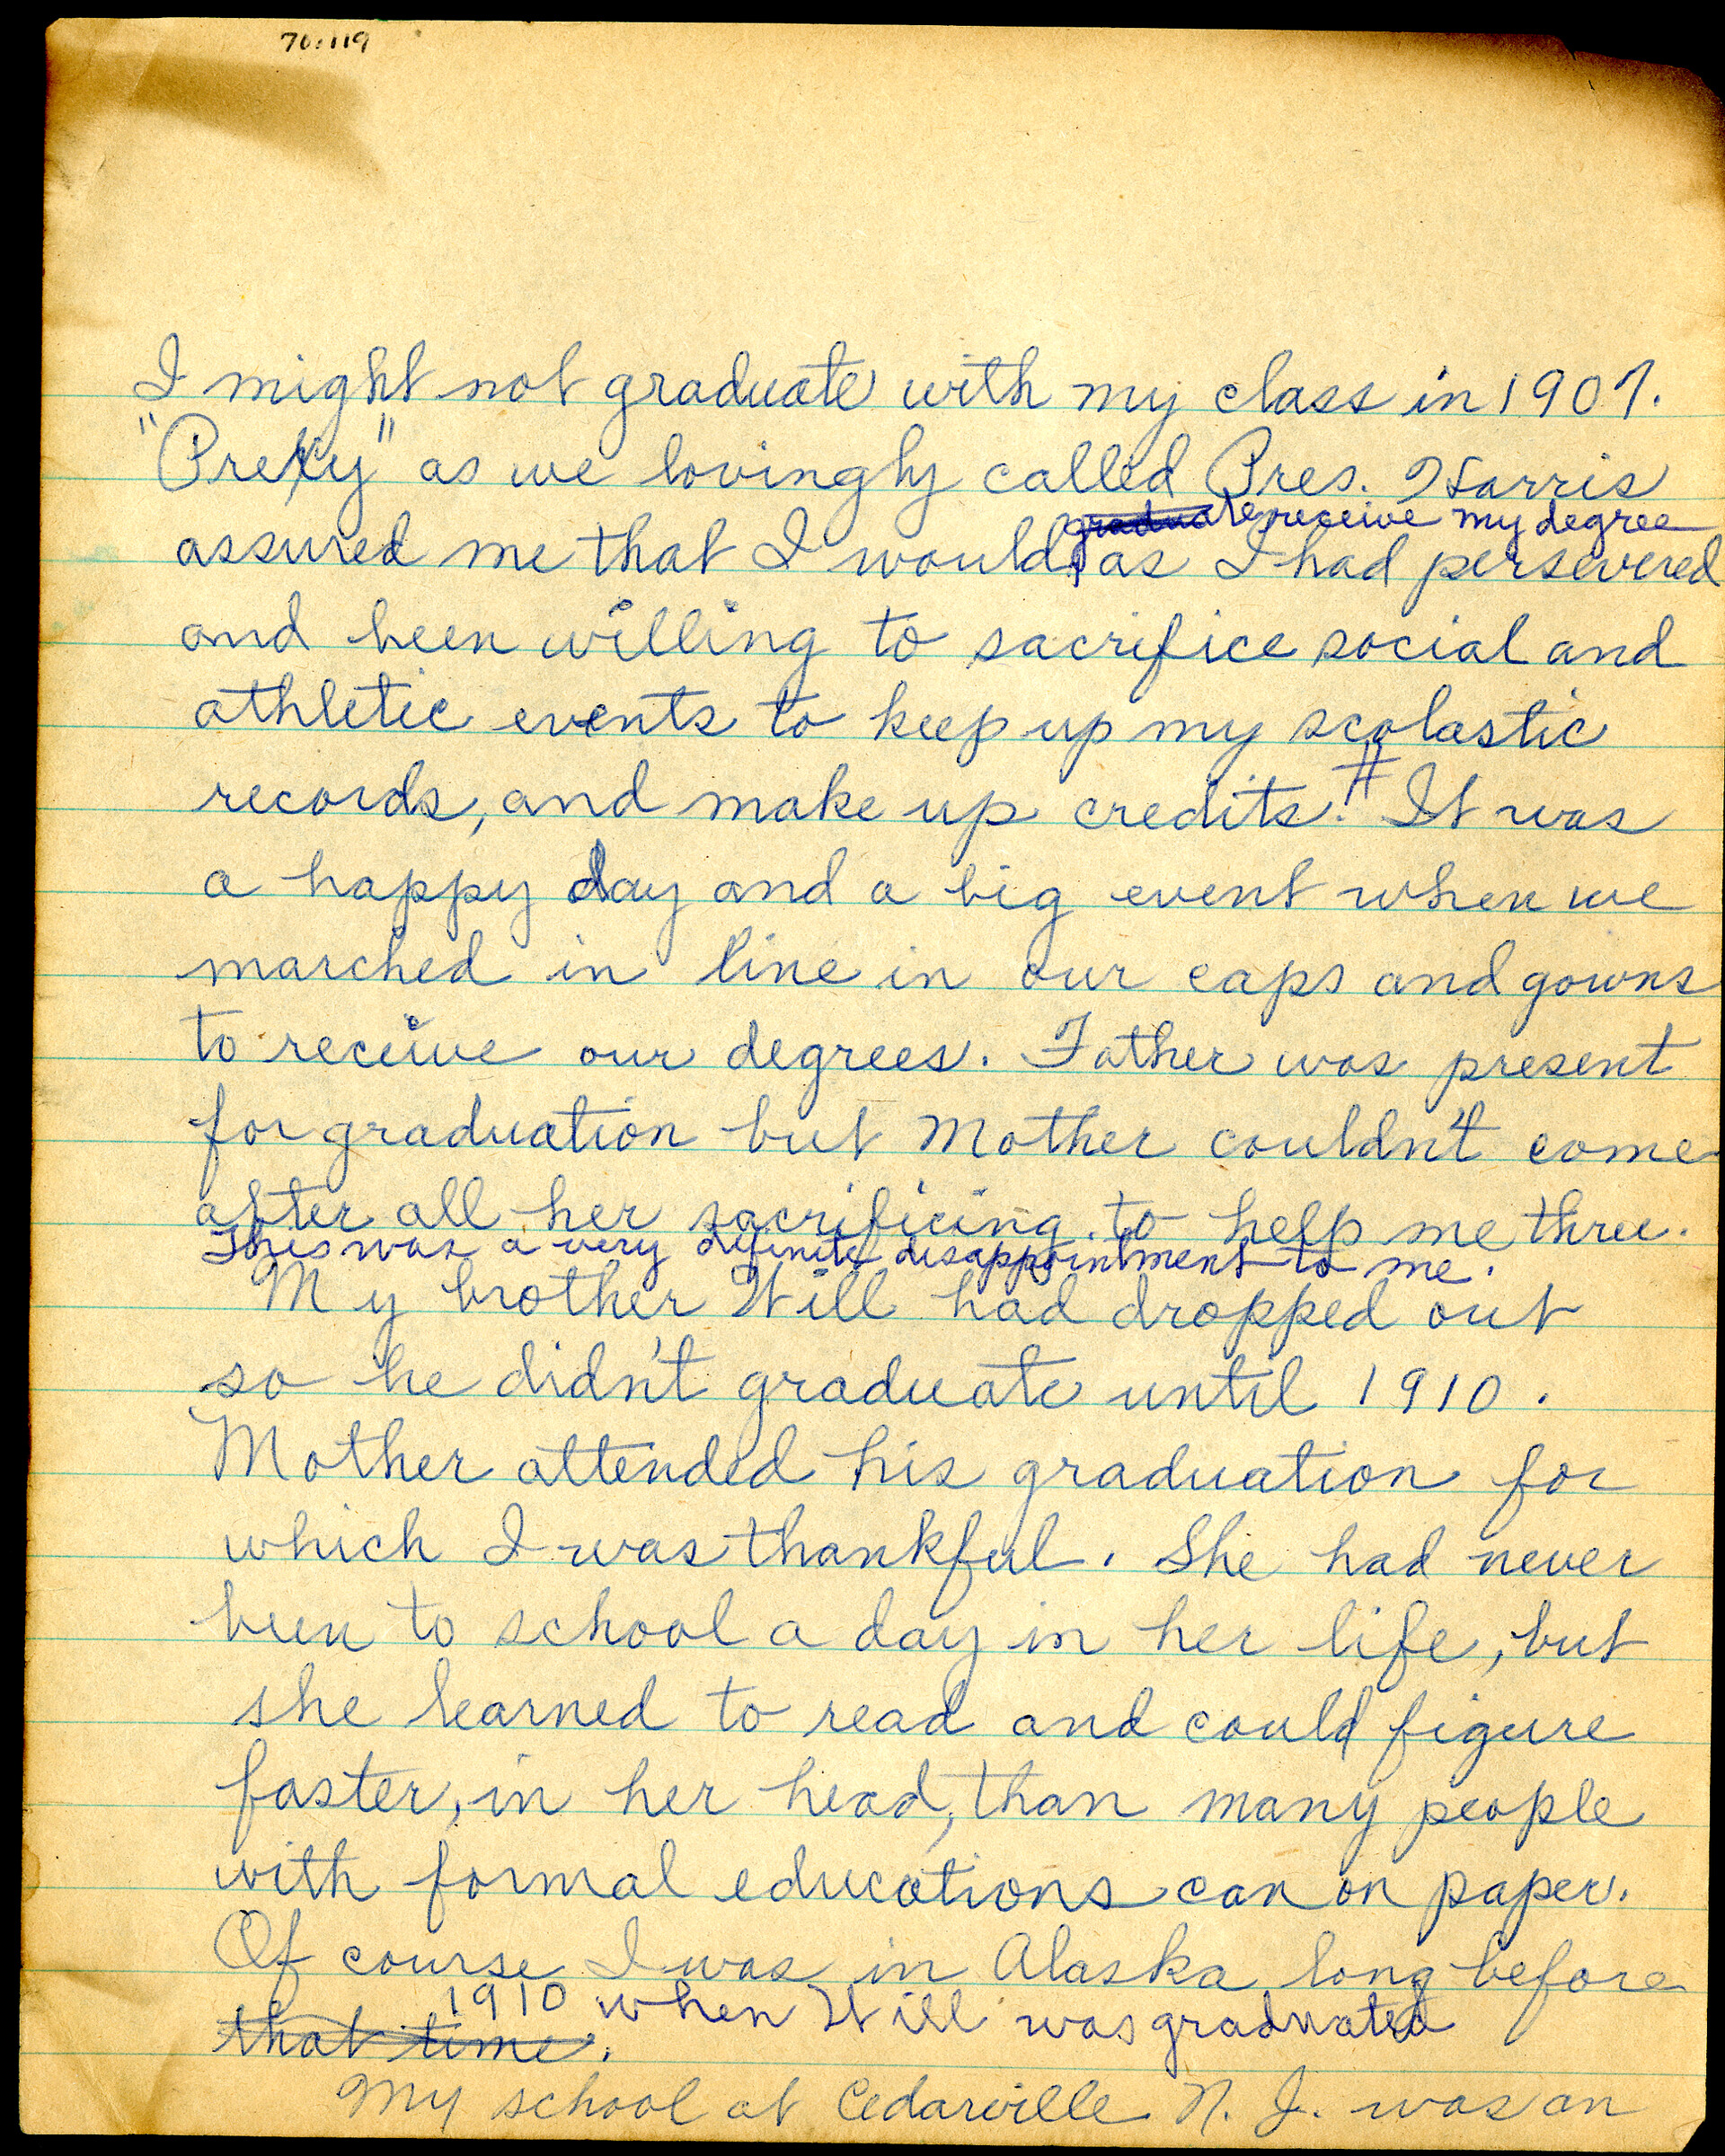 76:119
I might not graduate with my class in 1907.
"Prexy" as we lovingly called Pres. Harris
graduate receive my degree
assured me that I would as I had persevered
and been willing to sacrifice social and
athletic events to keep up my scolastic
records, and make up credits. # It was
a happy day and a big event when we
marched in line in our caps and gowns
to receive our degrees. Father was present
for graduation but Mother couldn't come
after all her sacrificing to help me three.
This was a very definite disappointment to me.
My brother Will had dropped out
so he didn't graduate until 1910.
Mother attended his graduation for
which I was thankful. She had never
been to school a day in her life, but
she learned to read and could figure
faster, in her head, than many people
with formal educations can on paper.
Of course I was in Alaska long before
1910 when Will was graduated
that time.
My school at Cedarville N. J. was an